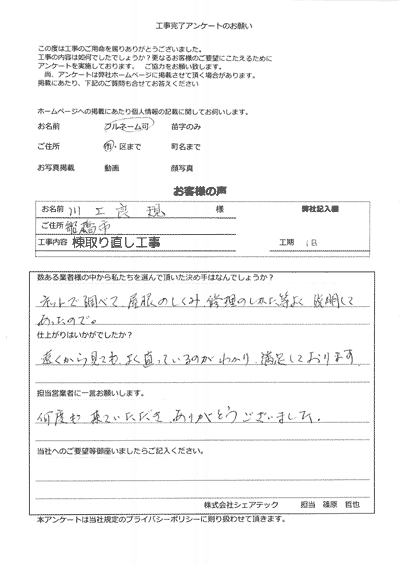 工事完了アンケートのお願い
この度は工事のご用命を賜りありがとうございました。
工事の内容は如何でしたでしょうか?更なるお客様のご要望にこたえるために
アンケートを実施しております。 ご協力をお願い致します。
尚、アンケートは弊社ホームページに掲載させて頂く場合があります。
掲載にあたり、下記のご質問も合せてお答えください
ホームページへの掲載にあたり個人情報の記載に関してお伺いします。
お名前 フルネーム可 苗字のみ
ご住所 市・区まで 町名まで
お写真掲載 動画 顔写真
お客様の声
お名前 川 様 弊社記入欄
ご住所 船橋市
工事内容 棟取り直し工事 工期 1日
数ある業者様の中から私たちを選んで頂いた決め手はなんでしょうか?
ネットで調べて、屋根のしくみ、修理のしかた等よく説明して
あったので。
仕上がりはいかがでしたか?
遠くから見ても、よく直っているのがわかり、満足しております
担当営業者に一言お願いします。
何度も来ていただき、ありがとうございました。
当社へのご要望等御座いましたらご記入ください。
株式会社シェアテック 担当 篠原 哲也
本アンケートは当社規定のプライバシーポリシーに則り扱わせて頂きます。